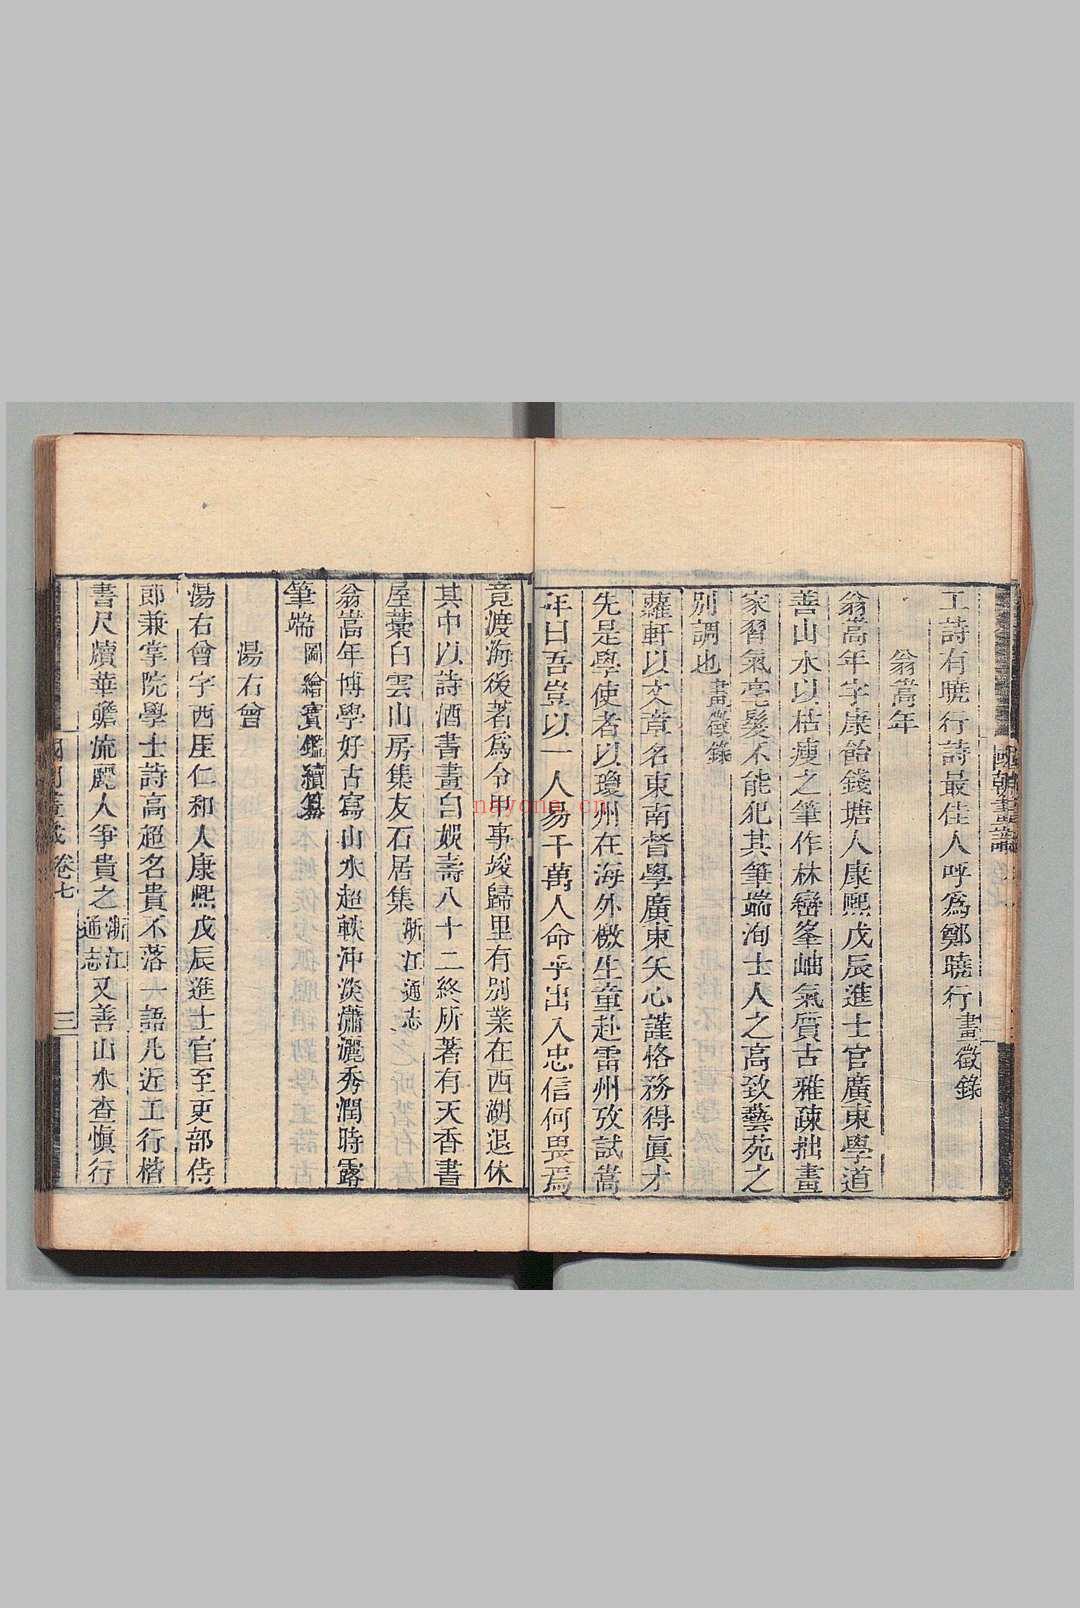 工詩有曉行詩最佳人呼爲鄭曉行畫徵錄
翁嵩年
翁嵩年字康飴錢塘人康熙戊辰進士官廣東學道
善山水以枯瘦之筆作林巒峯岫氣質古雅疎拙畫
家習氣毫髮不能犯其筆端洵士人之高致藝苑之
別調也畫徵錄
蘿軒以文章名東南督學廣東矢心謹恪務得眞才
先是學使者以瓊州在海外檄生童赴雷州攷試嵩
年曰吾豈以一人易千萬人命乎出入忠信何畏焉
竟渡海後著爲令甲事竣歸里有別業在西湖退休
其中以詩酒書畫自娛壽八十二終所著有天香書
屋藁白雲山房集友石居集浙江通志
翁嵩年博學好古寫山水超軼沖淡瀟灑秀潤時露
筆端圖繪寶鑑續纂
湯右曾
湯右曾字西厓仁和人康熙戊辰進士官至吏部侍
郎兼掌院學士詩高超名貴不落一語凡近工行楷
書尺牘華贍流麗人爭貴之浙江通志又善山水查愼行
國朝畫識
卷七
三
nayona.cn